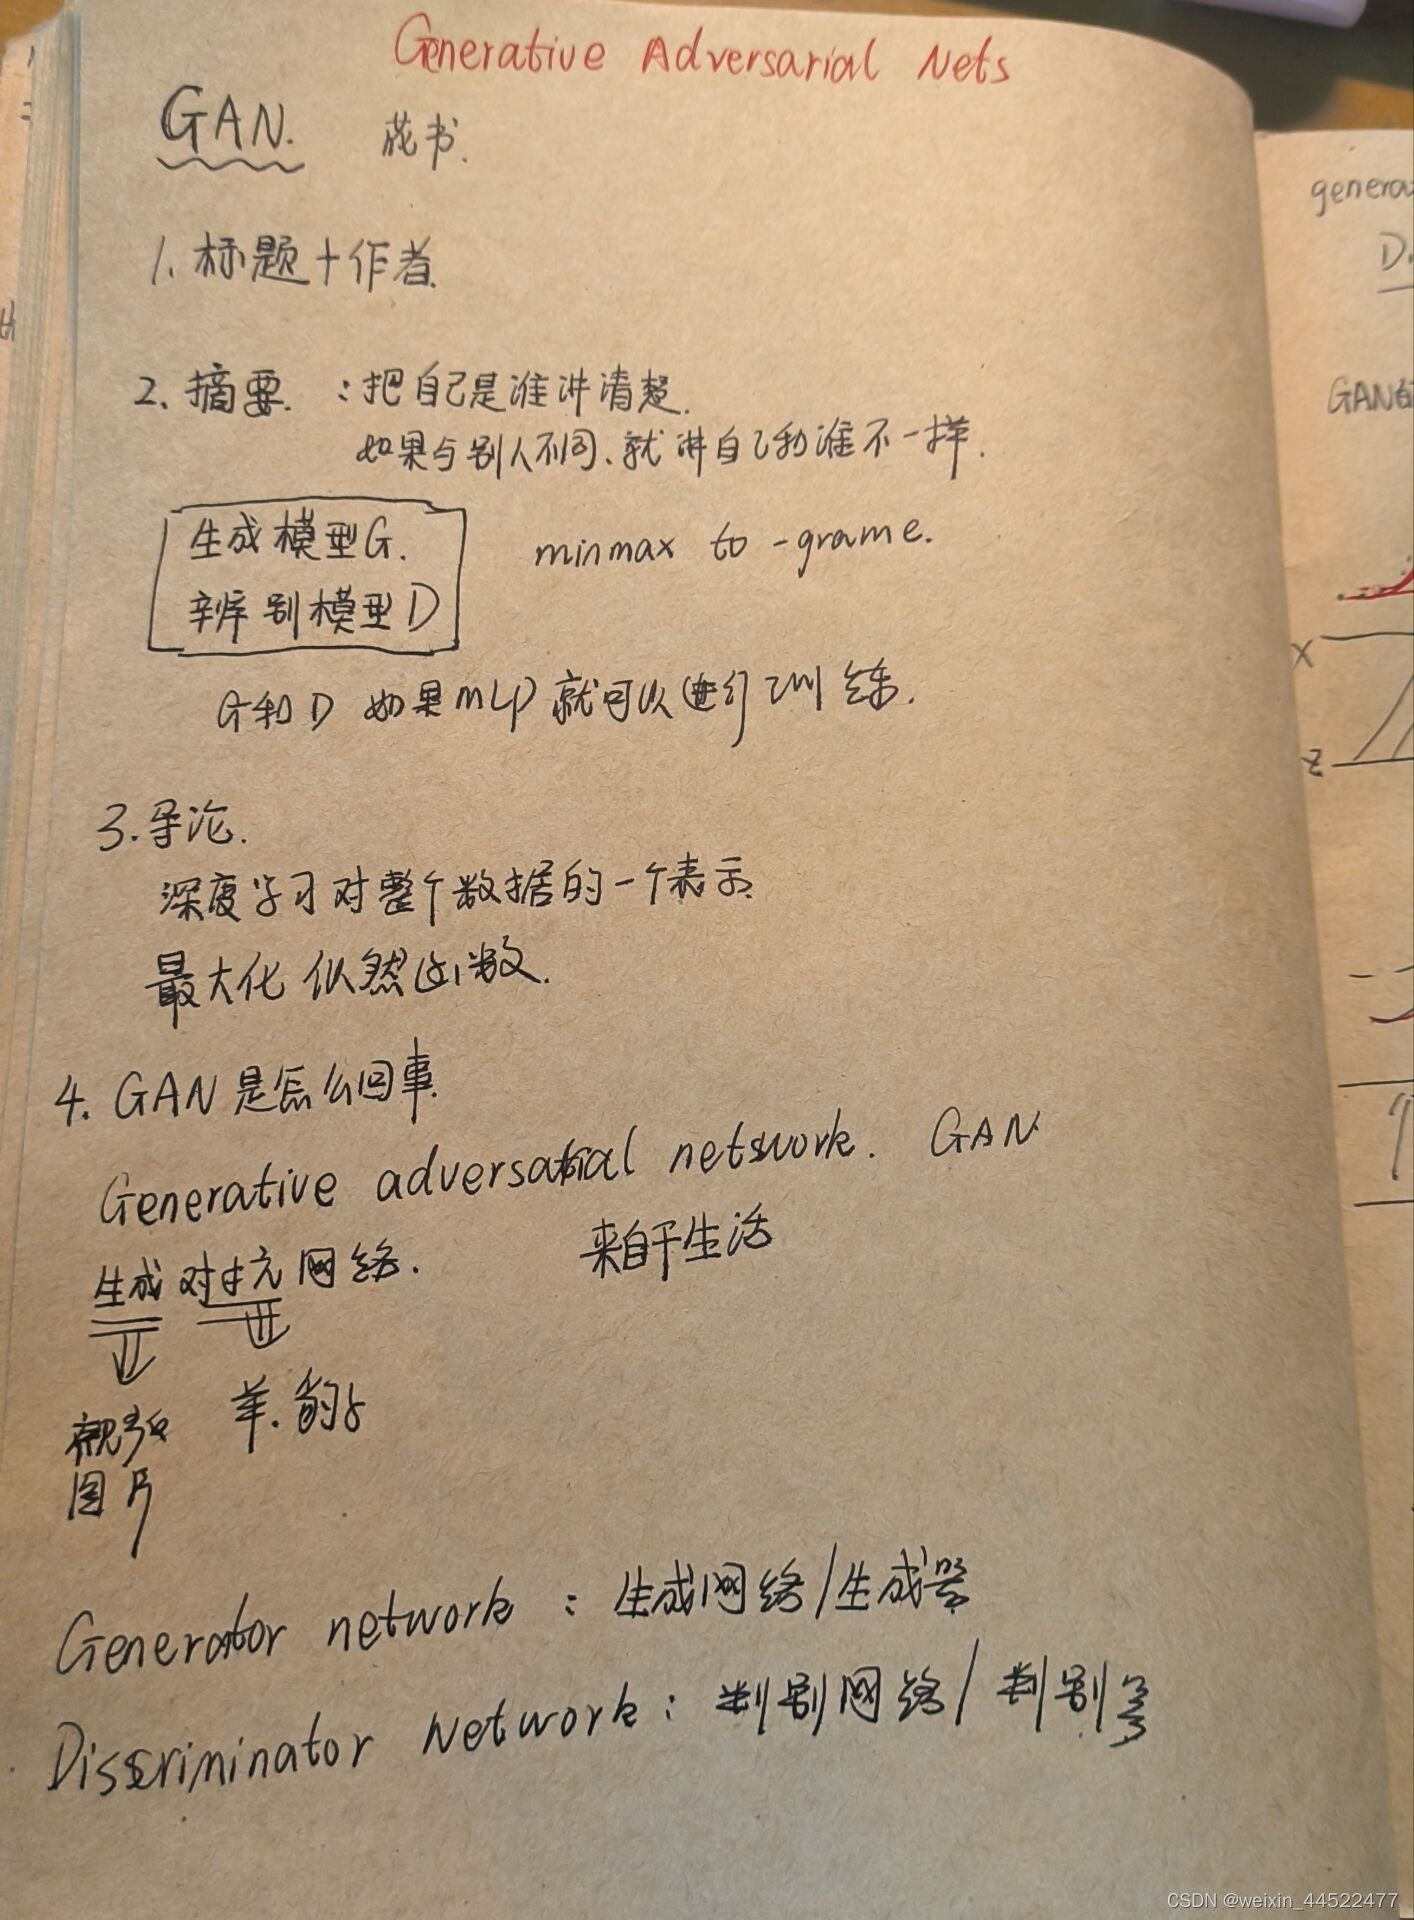 Generative Adversarial Nets
GAN. 花书.
1. 标题+作者.
2. 摘要. : 把自己是谁讲清楚.
如果与别人不同、就讲自己和谁不一样.
生成模型G.
辨别模型D
minmax to -grame.
G和D 如果MLP就可以进行训练.
3. 导论.
深度学习对整个数据的一个表示.
最大化似然函数.
4. GAN是怎么回事.
Generative adversatial network. GAN
生成对抗网络.
来自于生活
视频 羊.豹子
图片
Generator network : 生成网络/生成器
Discriminator Network : 判别网络/判别器
genera
D
GAN
X
z
CSDN @weixin_44522477